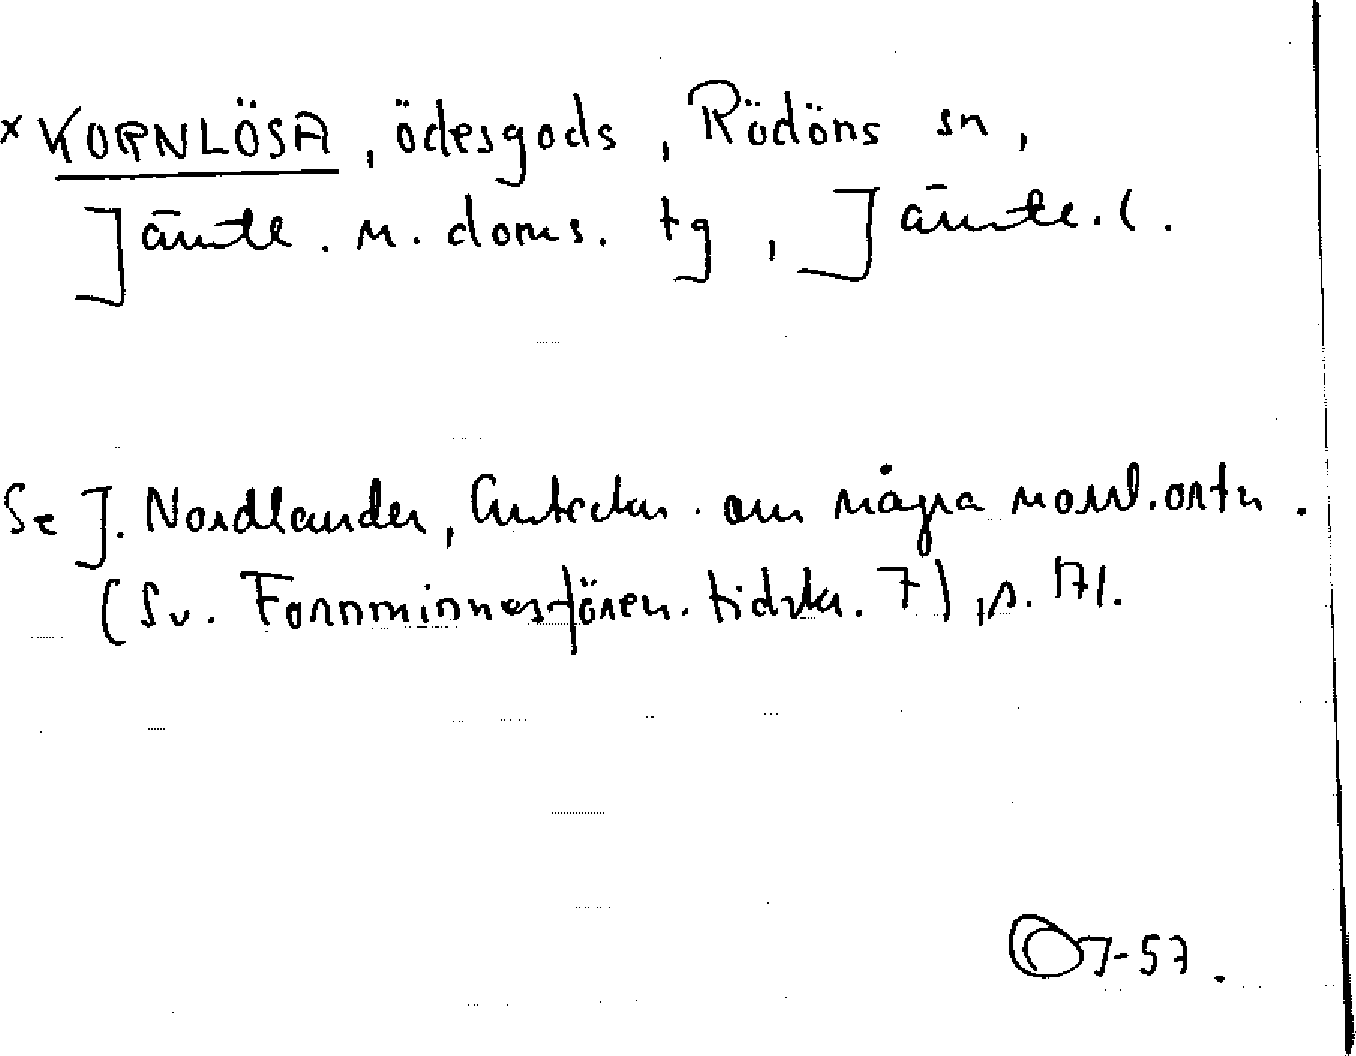 × KORNLÖSA, ödesgods, Rödöns sn,
Jämtl. n. doms. tg, Jämtl. l.
Se J. Nordlander, Anteckn. om några norrl. ortn.
(Sv. Fornminnesfören. tidskr. 7), s. 171.
OJ-57.